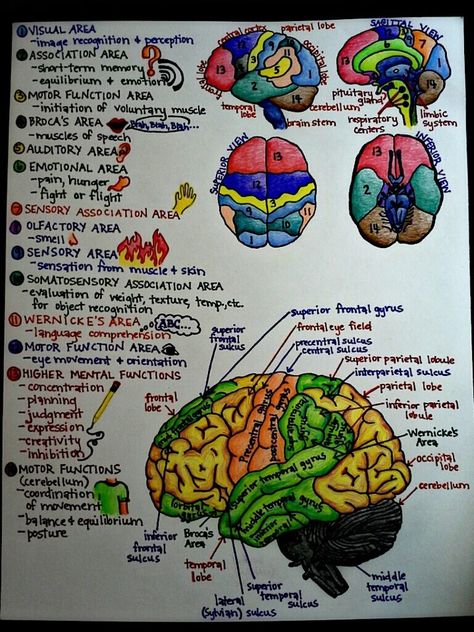 ① VISUAL AREA
-image recognition & perception
② ASSOCIATION AREA
-short-term memory
-equilibrium & emotion
③ MOTOR FUNCTION AREA
-initiation of voluntary muscle
④ BROCA'S AREA
Blah, Blah, Blah...
-muscles of speech
⑤ AUDITORY AREA
⑥ EMOTIONAL AREA
-pain, hunger
-fight or flight
⑦ SENSORY ASSOCIATION AREA
⑧ OLFACTORY AREA
-smell
⑨ SENSORY AREA
-sensation from muscle & skin
⑩ SOMATOSENSORY ASSOCIATION AREA
-evaluation of weight, texture, temp., etc.
for object recognition
⑪ WERNICKE'S AREA
ABC...
-language comprehension
⑫ MOTOR FUNCTION AREA
-eye movement & orientation
⑬ HIGHER MENTAL FUNCTIONS
-concentration
-planning
-judgment
-expression
-creativity
-inhibition
⑭ MOTOR FUNCTIONS
(cerebellum)
-coordination
of movement
-balance & equilibrium
-posture
central cortex
parietal lobe
frontal lobe
occipital lobe
temporal
lobe
cerebellum
brain stem
SAGITTAL VIEW
pituitary
gland
respiratory
centers
limbic
system
SUPERIOR VIEW
INFERIOR VIEW
superior frontal gyrus
frontal eye field
precentral sulcus
central sulcus
superior
frontal
sulcus
superior parietal lobule
interparietal sulcus
parietal lobe
inferior parietal
lobule
Wernicke's
Area
occipital
lobe
cerebellum
frontal
lobe
Precentral gyrus
Postcentral gyrus
supramarginal
gyrus
Superior temporal gyrus
middle temporal gyrus
inferior
orbital
gyrus
inferior
frontal
sulcus
Broca's
Area
temporal
lobe
lateral
(Sylvian) sulcus
superior
temporal
sulcus
middle
temporal
sulcus